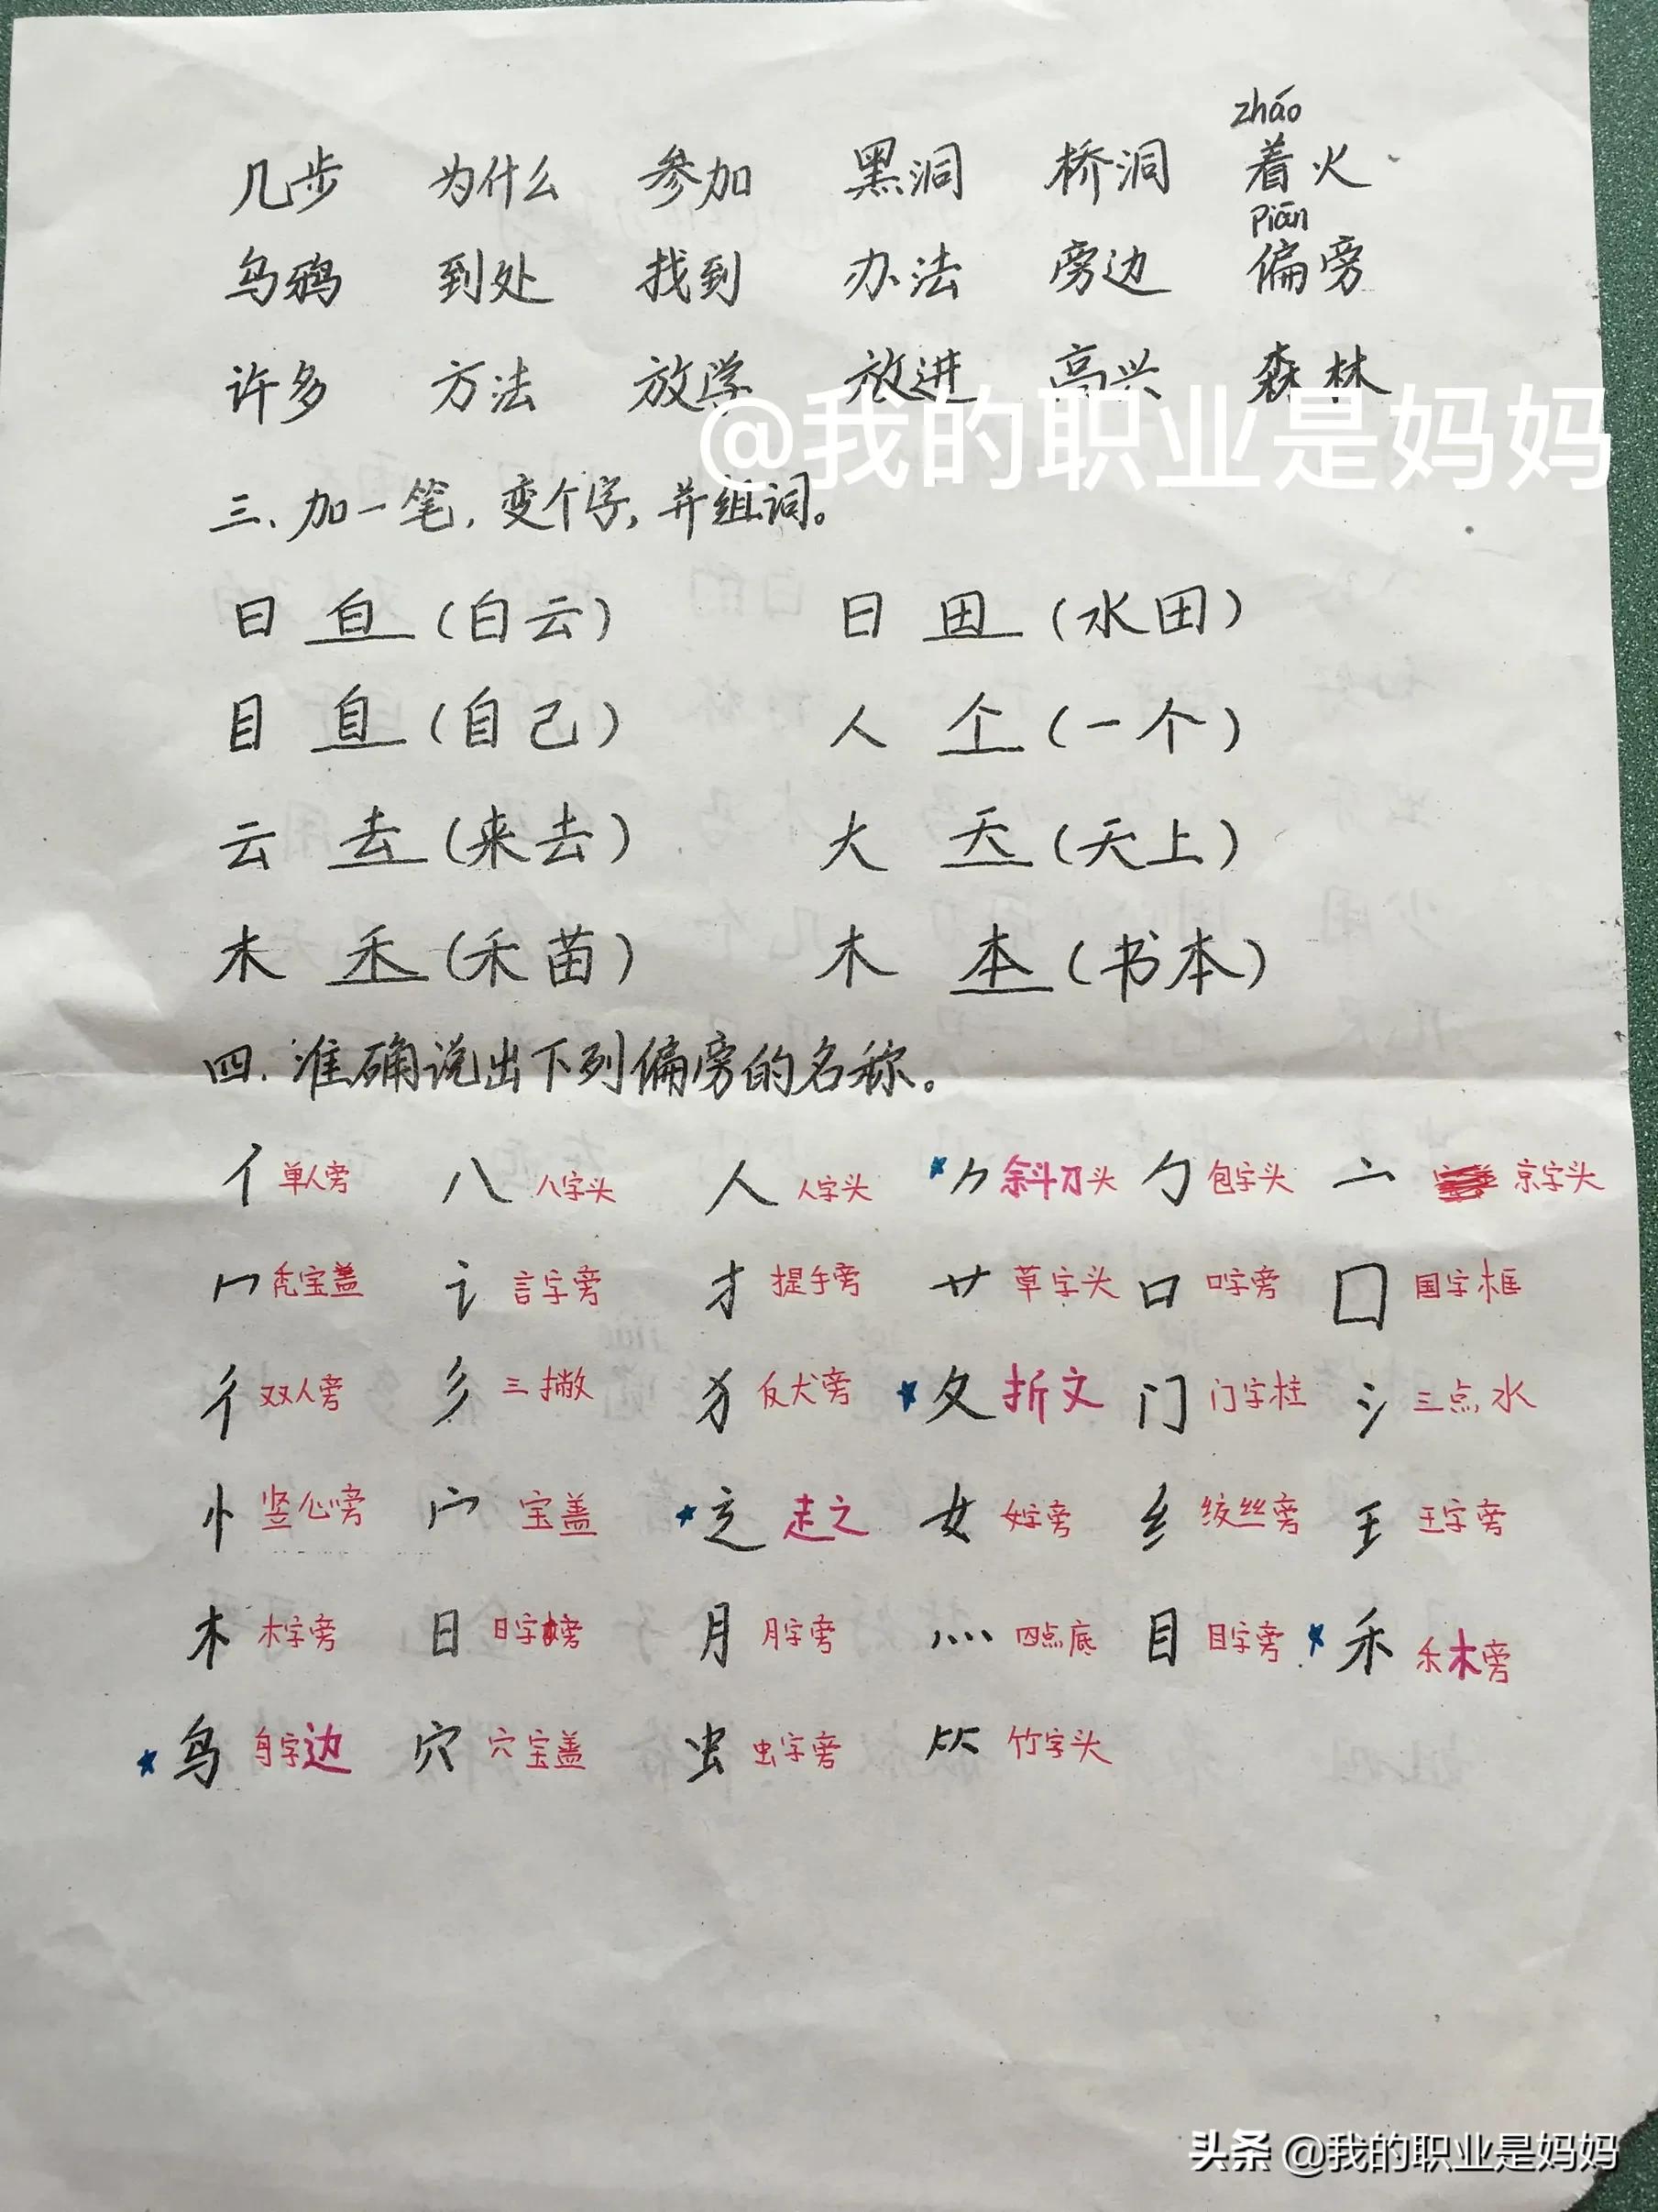 zháo
几步 为什么 参加 黑洞 桥洞 着火
piān
乌鸦 到处 找到 办法 旁边 偏旁
许多 方法 放学 放进 高兴 森林
@我的职业是妈妈
三、加一笔,变个字,并组词。
日 白 (白云) 日 田 (水田)
目 自 (自己) 人 个 (一个)
云 去 (来去) 大 天 (天上)
木 禾 (禾苗) 木 本 (书本)
四、准确说出下列偏旁的名称。
亻 单人旁 八 八字头 人 人字头 ⺈ 斜刀头 勹 包字头 亠 京字头
冖 秃宝盖 讠 言字旁 扌 提手旁 艹 草字头 口 口字旁 囗 国字框
彳 双人旁 彡 三撇 犭 反犬旁 夂 折文 门 门字框 氵 三点水
忄 竖心旁 宀 宝盖 辶 走之 女 女字旁 纟 绞丝旁 王 王字旁
木 木字旁 日 日字旁 月 月字旁 灬 四点底 目 目字旁 禾 禾木旁
鸟 鸟字边 穴 穴宝盖 虫 虫字旁 ⺮ 竹字头
头条 @我的职业是妈妈